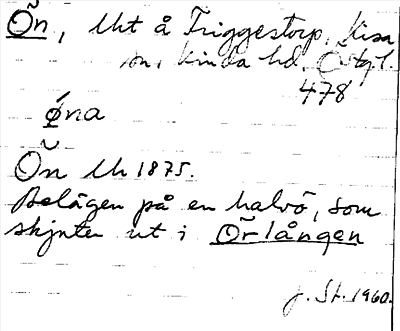 Ön, lht å Triggestorp, Kisa
sn, Kinda hd. Ötg.l.
478
øna
Ön lh 1875.
Belägen på en halvö, som
skjuter ut i Örlången
J. St. 1960.